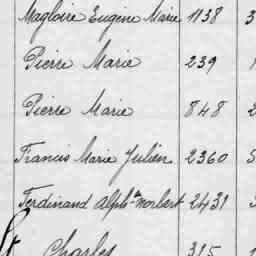 Magloire Eugène Marie 1138 3
Pierre Marie 239
Pierre Marie 848 2
Francis Marie Julien 2360 5
Ferdinand Alphse Norbert 2431
Charles 315 1